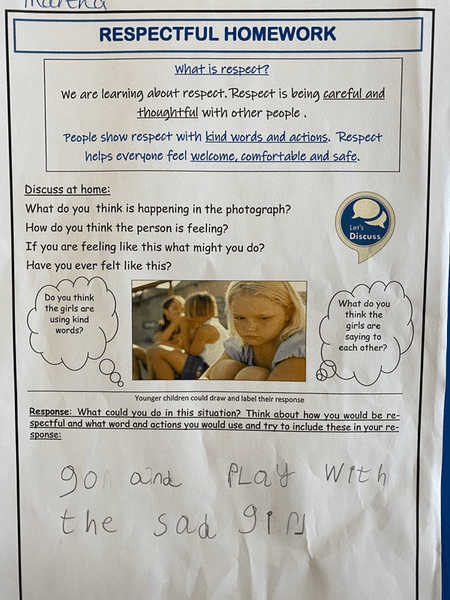 Martha
RESPECTFUL HOMEWORK
What is respect?
We are learning about respect. Respect is being careful and
thoughtful with other people .
People show respect with kind words and actions. Respect
helps everyone feel welcome, comfortable and safe.
Discuss at home:
What do you think is happening in the photograph?
How do you think the person is feeling?
If you are feeling like this what might you do?
Have you ever felt like this?
Let's
Discuss
Do you think
the girls are
using kind
words?
What do you
think the
girls are
saying to
each other?
Younger children could draw and label their response
Response: What could you do in this situation? Think about how you would be re-
spectful and what word and actions you would use and try to include these in your re-
sponse:
go and PLay with
the sad girl